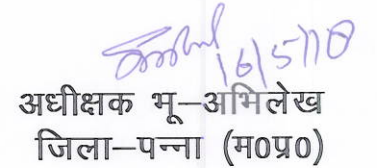 16/5/18
अधीक्षक भू–अभिलेख
जिला–पन्ना (म0प्र0)